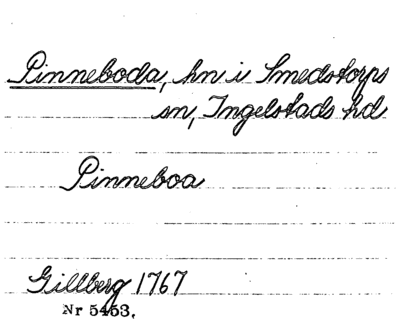 Pinneboda, hn i Smedstorps
sn, Ingelstads hd
Pinneboa
Gillberg 1767
Nr 5453.